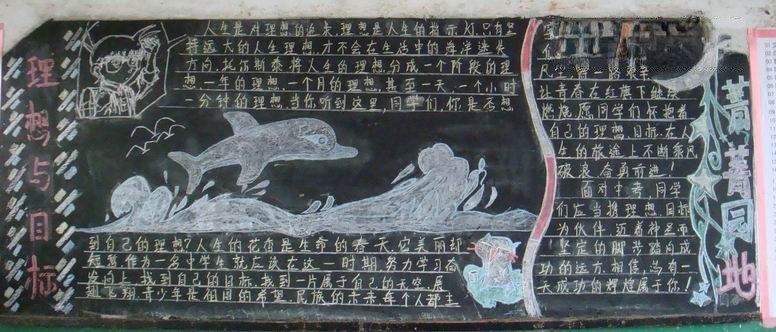 理想与目标
人生是对理想的追求,理想是人生的指示灯,只有坚
持远大的人生理想,才不会在生活中的海洋迷失
方向,托尔斯泰将人生的理想分成一个阶段的理
想,一年的理想,一个月的理想,甚至一天,一个小时
一分钟的理想,当你听到这里,同学们,你是否想
到自己的理想?人生的花季是生命的春天,它美丽却
短暂,作为一名中学生就应该在这一时期,努力学习,奋
发向上,找到自己的目标,找到一片属于自己的天空,展
翅飞翔,青少年是祖国的希望,民族的未来,每个人都主
让青春在红旗下继续
燃烧,愿同学们怀抱着
自己的理想、目标,在人
生的旅途上不断乘风
破浪,奋勇前进!
面对中考,同学
们应当携理想、目标
为伙伴,迈着神圣而
坚定的脚步踏向成
功的远方,相信,总有一
天成功的辉煌属于你!
菁菁园地